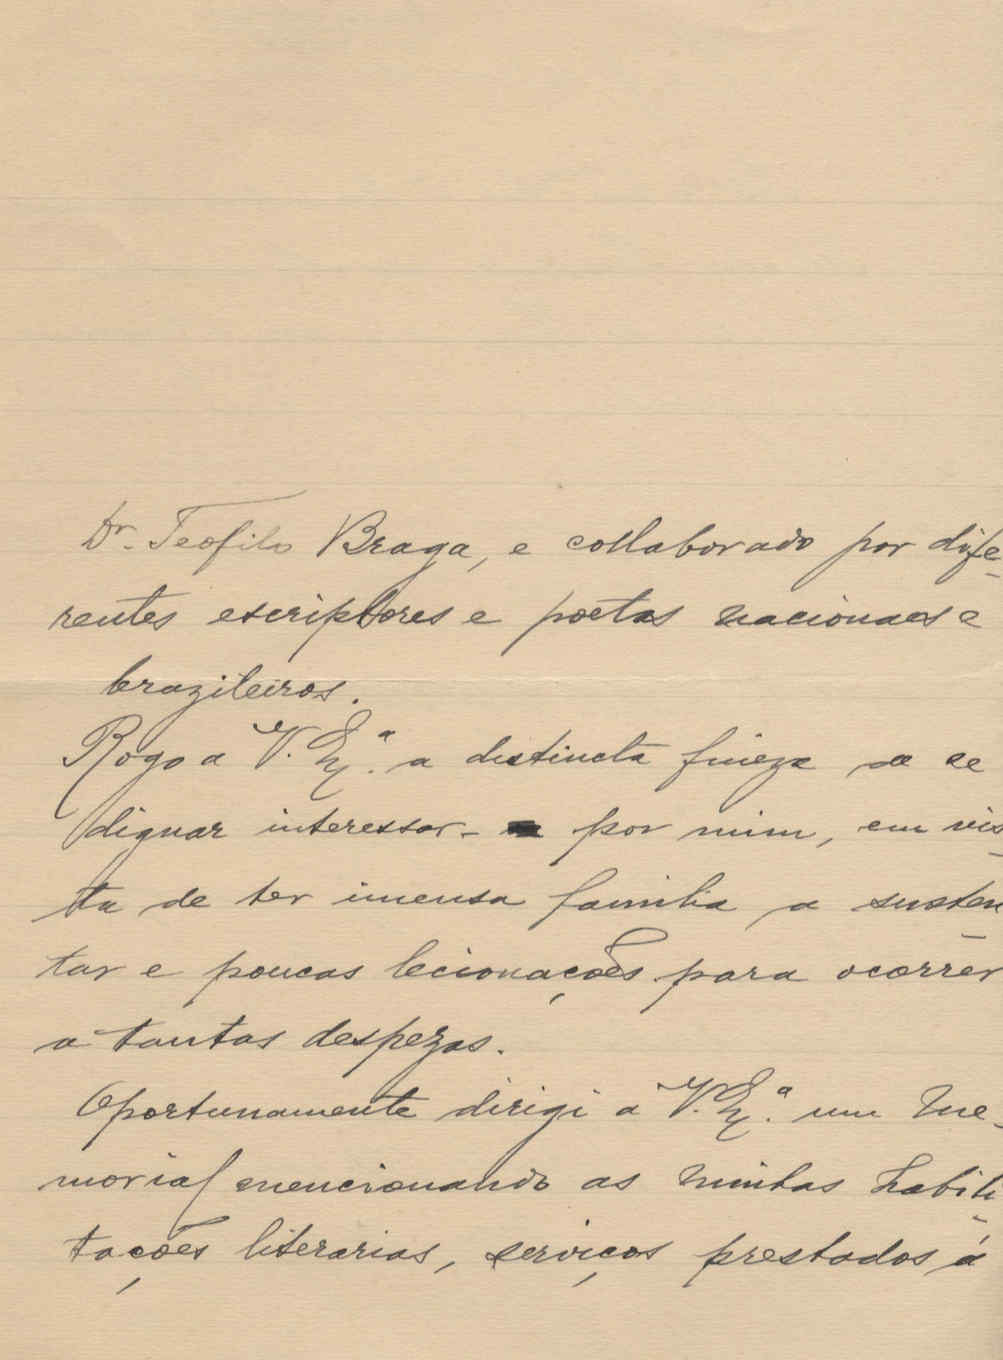 Dr. Teofilo Braga, e collaborado por dife-
rentes escriptores e poetas nacionaes e
brazileiros.
Rogo a V. Ex.ª a distincta fineza de se
dignar interessar- por mim, em vis-
ta de ter imensa familia a susten-
tar e poucas lecionações para ocorrer
a tantas despezas.
Oportunamente dirigi a V. Ex.ª um me-
morial mencionando as minhas habili-
tações literarias, serviços prestados á